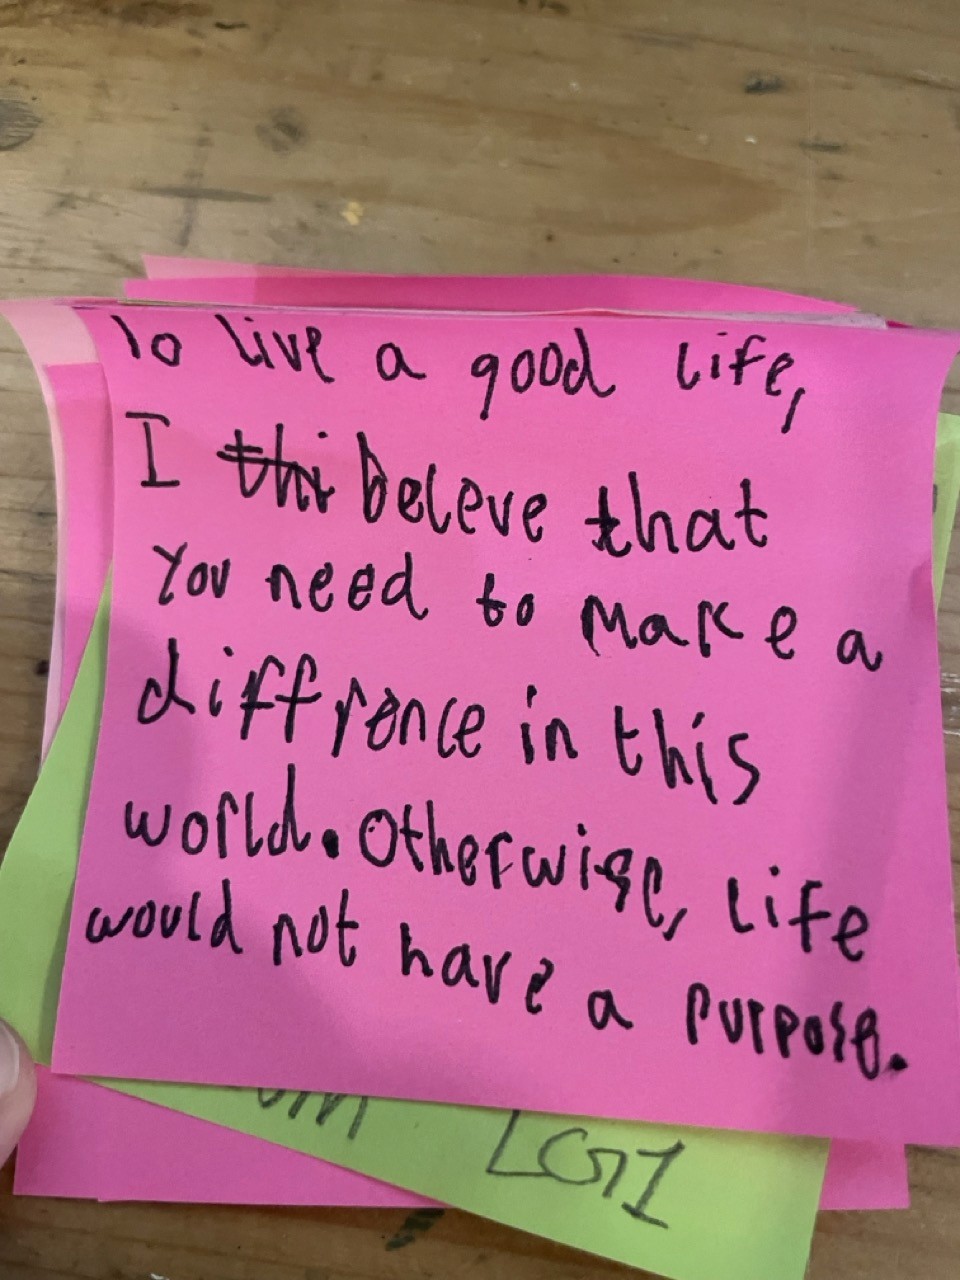 To live a good life,
I thi beleve that
You need to make a
diffrence in this
world. Otherwise, life
would not have a purpose.
LG1